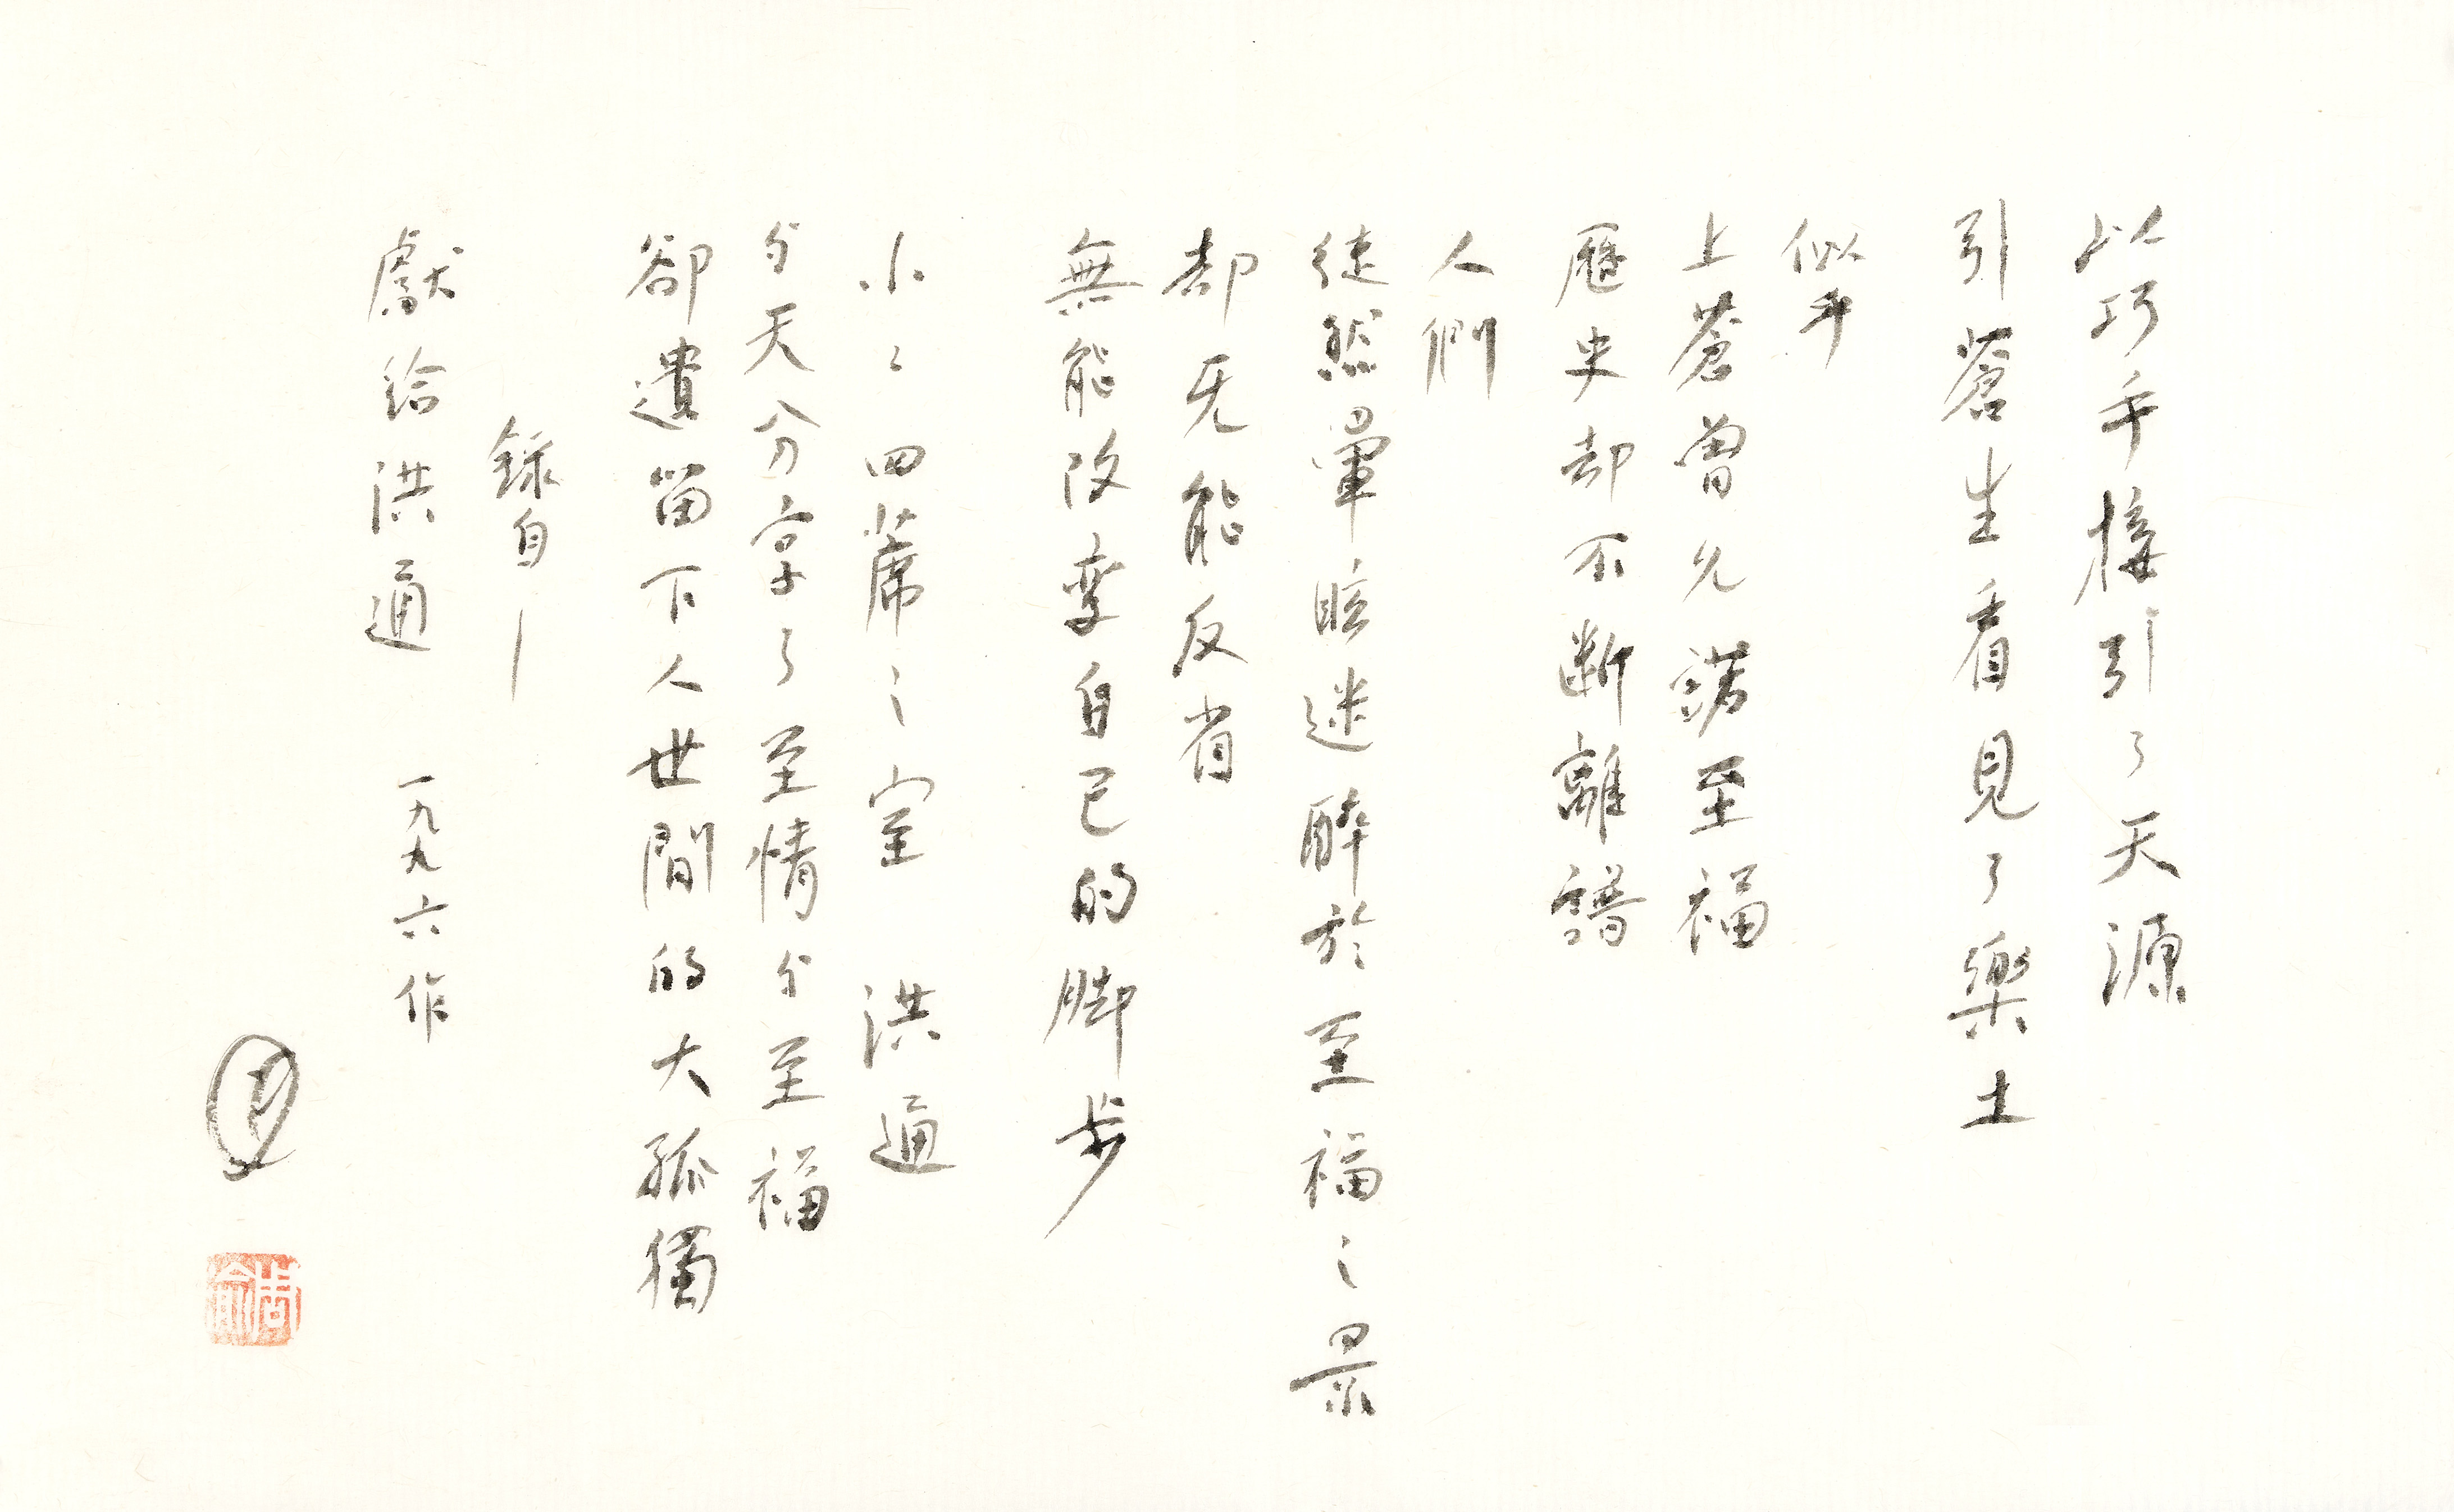 以巧手接引了天源
引蒼生看見了樂土
似乎
上蒼曾允諾至福
歷史却不断離譜
人們
徒然暈眩迷醉於至福之景
却无能反省
無能改變自己的脚步
小小四蓆之室 洪通
分天分享了至情分至福
卻遺留下人世間的大孤獨
錄自—
獻給洪通 一九九六作
周渝